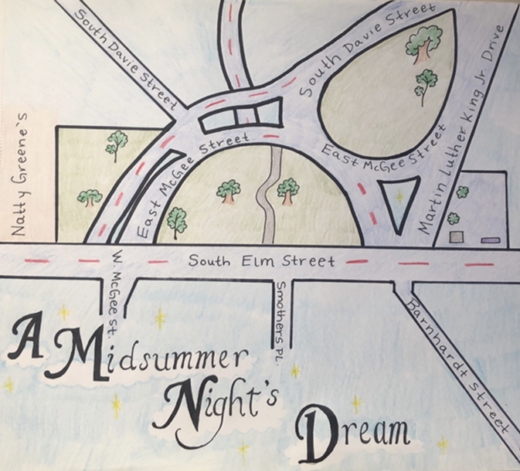 South Davie Street
South Davie Street
Martin Luther King Jr. Drive
East McGee Street
East McGee Street
Natty Greene's
South Elm Street
W. McGee St.
Smothers Pl.
Barnhardt Street
A Midsummer
Night's
Dream